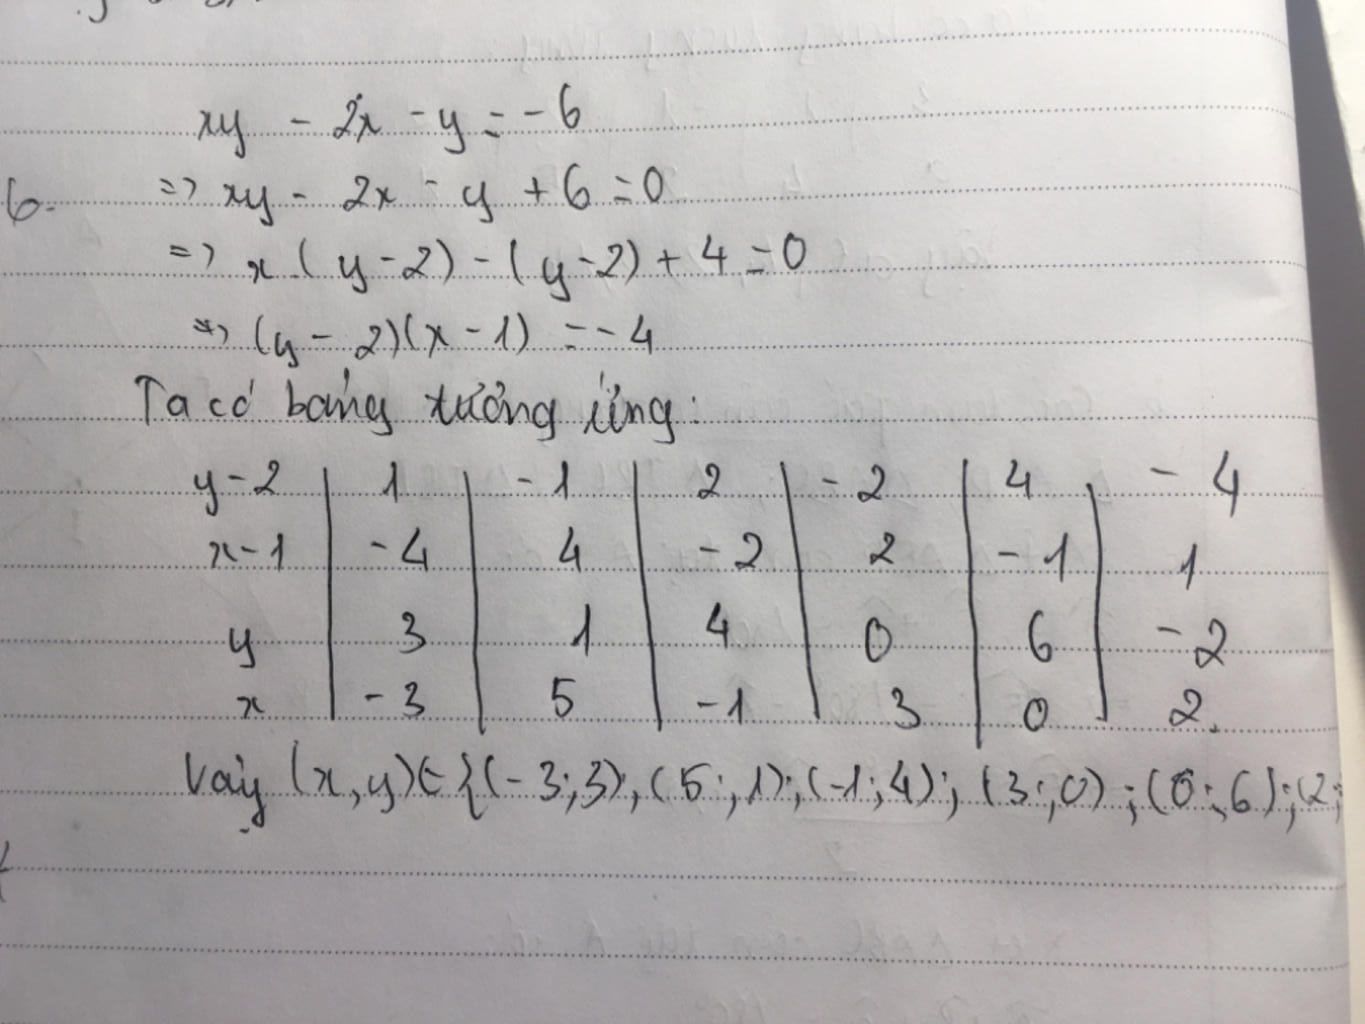 xy - 2x - y = -6
6. => xy - 2x - y + 6 = 0
=> x(y-2) - (y-2) + 4 = 0
=> (y - 2)(x - 1) = -4
Ta có bảng tương ứng:
y-2 | 1 | -1 | 2 | -2 | 4 | -4
x-1 | -4 | 4 | -2 | 2 | -1 | 1
y | 3 | 1 | 4 | 0 | 6 | -2
x | -3 | 5 | -1 | 3 | 0 | 2.
Vậy (x,y)∈{(-3;3);(5;1);(-1;4);(3;0);(0;6);(2;